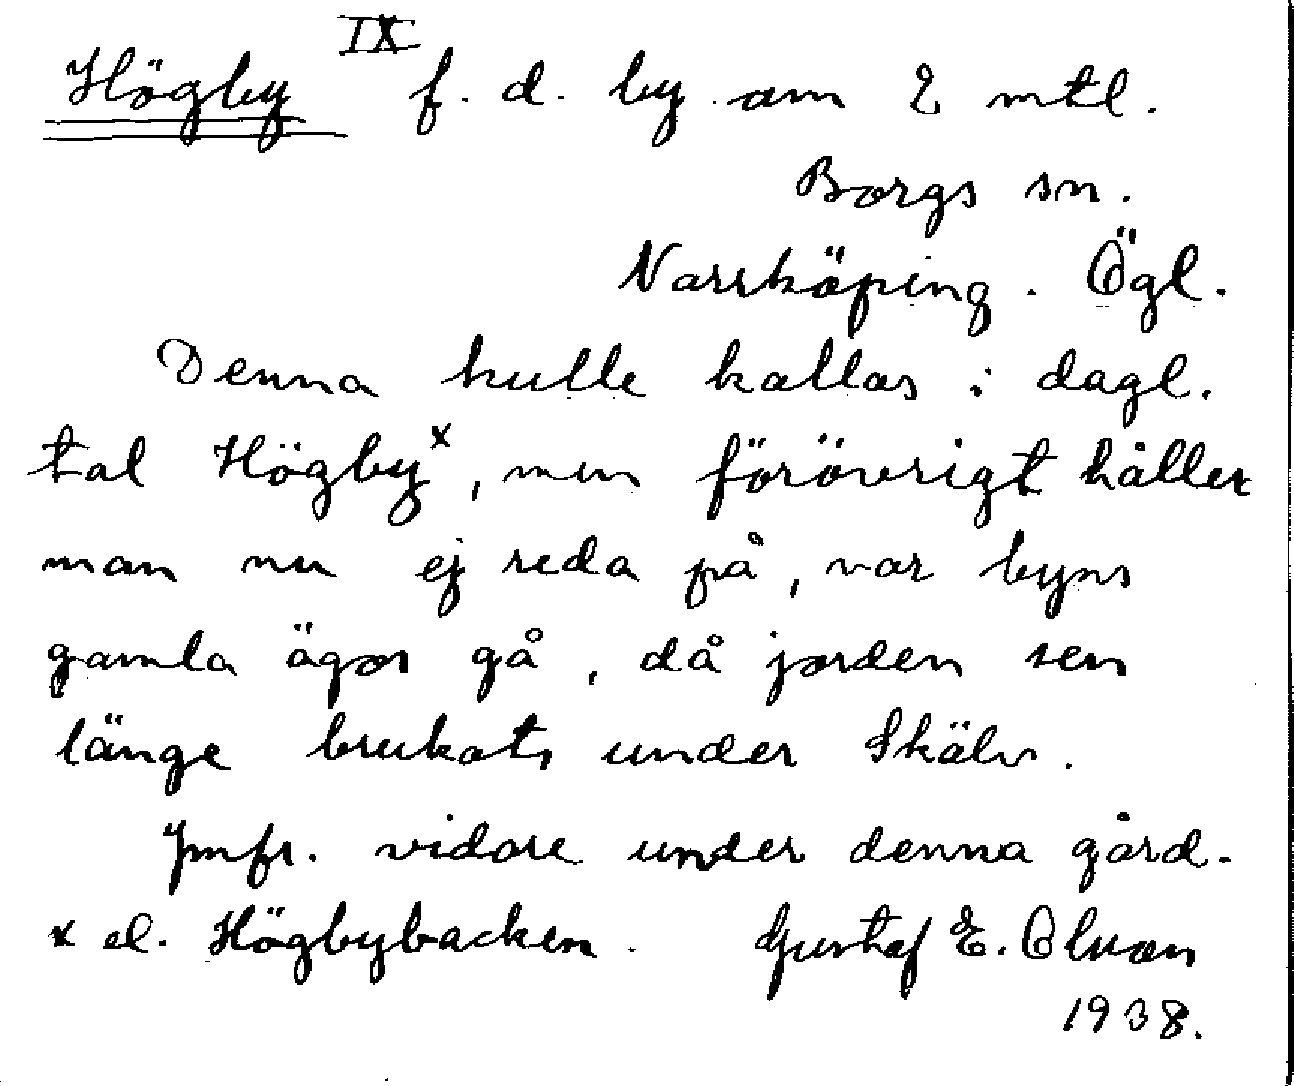 IX
Högby f. d. by om 2 mtl.
Borgs sn.
Norrköping. Ögl.
Denna kulle kallas i dagl.
tal Högbyˣ, men förövrigt håller
man nu ej reda på, var byns
gamla ägor gå, då jorden sen
länge brukats under Skälv.
Jmfr. vidare under denna gård.
x el. Högbybacken. Gustaf E. Olson
1938.